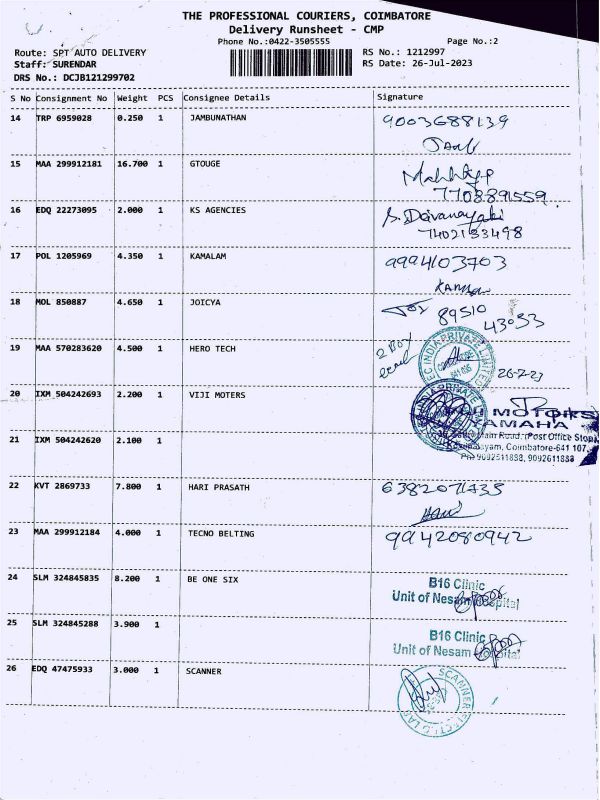 THE PROFESSIONAL COURIERS, COIMBATORE
Delivery Runsheet - CMP
Phone No.:0422-3505555 Page No.:2
Route: SPT AUTO DELIVERY RS No.: 1212997
Staff: SURENDAR RS Date: 26-Jul-2023
DRS No.: DCJB121299702
S No Consignment No Weight PCS Consignee Details Signature
14 TRP 6959028 0.250 1 JAMBUNATHAN 9003688139
15 MAA 299912181 16.700 1 GTOUGE
7708891559
16 EDQ 22273095 2.000 1 KS AGENCIES S. Daivanayaki
7402133498
17 POL 1205969 4.350 1 KAMALAM 9994103703
18 MOL 850887 4.650 1 JOICYA Joy 89510
43033
19 MAA 570283620 4.500 1 HERO TECH 2 Box
EC INDIA PRIVATE LIMITED
26-7-23
20 IXM 504242693 2.200 1 VIJI MOTERS
MOTORS
YAMAHA
Main Road, (Post Office Stop),
Coimbatore-641 107.
PH: 9092511888, 9092611888
21 IXM 504242620 2.100 1
22 KVT 2869733 7.800 1 HARI PRASATH 6382071435
Hari
23 MAA 299912184 4.000 1 TECNO BELTING 9942080942
24 SLM 324845835 8.200 1 BE ONE SIX B16 Clinic
Unit of Nesam Hospital
25 SLM 324845288 3.900 1 B16 Clinic
Unit of Nesam Hospital
26 EDQ 47475933 3.000 1 SCANNER
SCANNER